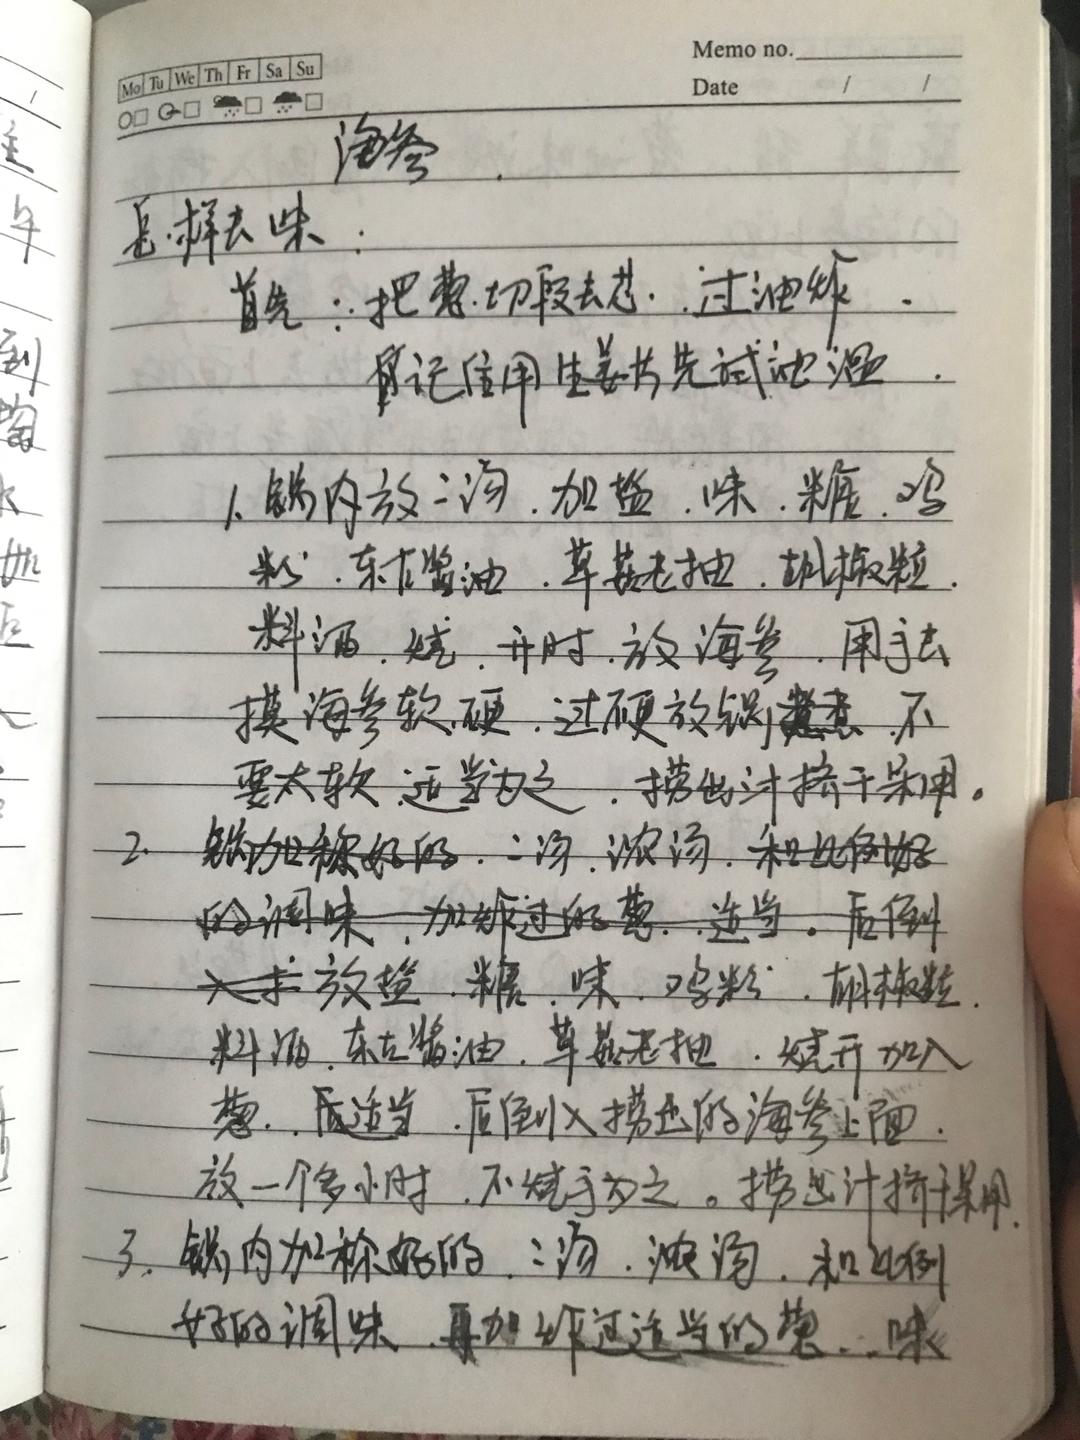 Memo no.
Date / /
Mo Tu We Th Fr Sa Su
海参
怎样去味：
首先：把葱.切段去芯..过油炸.
记住用生姜片先试油温.
1.锅内放二汤.加盐.味.糖.鸡
粉.东古酱油.草菇老抽.胡椒粒.
料酒.烧.开时.放海参.用手去
摸海参软.硬.过硬放锅煮.不
要太软.适当为之.捞出汁挤干采用。
2.锅加称好的.二汤.浓汤.和比例好
的调味.加炸过的葱..适当.后倒
入 放盐.糖.味.鸡粉.胡椒粒.
料酒.东古酱油.草菇老抽.烧开加入
葱..后适当.后倒入捞出的海参上面.
放一个多小时.不烧手为之。捞出汁挤干采用.
3.锅内加称好的.二汤.浓汤.和比例
好的调味.再加炸过适当的葱..味
主
年
到